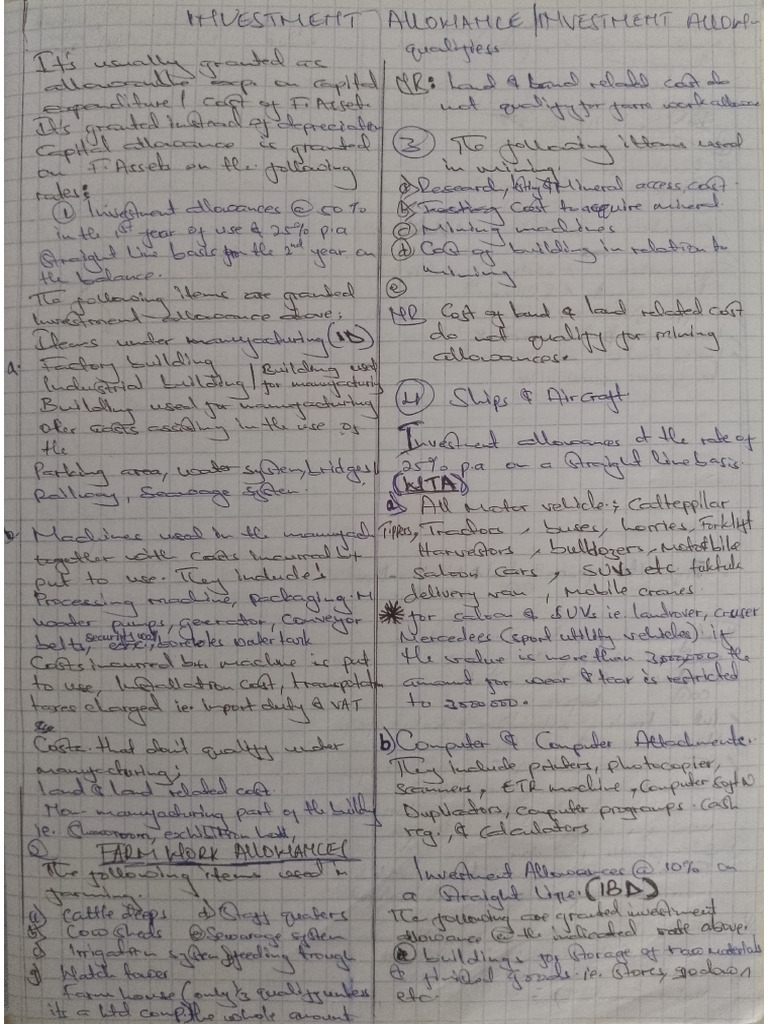 INVESTMENT ALLOWANCE/INVESTMENT ALLOW-
It's usually granted as
allowance on capital
expenditure / cost of F. Asset.
It's granted instead of depreciation
Capital allowance is granted
on F. Assets on the following
rates:
① Investment allowances @ 50%
in the 1st year of use & 25% p.a
Straight Line basis from the 2nd year on
the balance.
The following items are granted
Investment allowance above:
Items under manufacturing (IBD)
a. Factory building
Industrial building / Building used for manufacturing
Building used for manufacturing
other costs in the use of
the
Parking area, water system, bridges,
Railway, Sewarage system.
b. Machines used in the manufact
together with costs incurred
put to use. They include's
Processing machine, packaging M
water pumps, generator, conveyor
belts, security wall, boreholes water tank
Costs incurred b4 machine is put
to use, Installation cost, transportation
taxes charged ie. import duty & VAT
Costs that don't qualify under
manufacturing:
land & land related cost
Non-manufacturing part of the building
ie. Showroom, exhibition hall,
② FARM WORK ALLOWANCES
The following items used in
farming.
a) Cattle dips d) Staff quaters
b) Cow sheds e) Sewarage system
c) Irrigation system f) feeding trough
g) Watch tower
Farm house (only 1/3 qualify unless
it's a Ltd comp. the whole amount
qualifies
NB: Land & land related cost do
not qualify for farm work allowance
③ The following items used
in mining
a) Research, Mineral access, cost.
b) Cost to acquire mineral
c) Mining machines
d) Cost of building in relation to
mining
e
NB Cost of land & land related cost
do not qualify for mining
allowances.
④ Ships & Aircraft
Investment allowances at the rate of
25% p.a on a straight line basis.
(WTA)
a) All Motor vehicles: Catteppilar
Tippers, Tractors, buses, lorries, Forklift
Harvestors, bulldozers, Motorbike
Saloon cars, SUVs etc tuktuk
delivery van, Mobile cranes.
* for saloon & SUVs ie. landrover, cruiser
Mercedees (sport utility vehicles) if
the value is more than 3,000,000 the
amount for wear & tear is restricted
to 3000000.
b) Computer & Computer Attachments.
They include printers, photocopier,
Scanners, ETR machine, Computer Soft W
Duplicators, computer programs. cash
reg., & Calculators
Investment Allowances @ 10% on
a Straight Line: (IBD)
The following are granted investment
allowance @ the indicated rate above.
a buildings for storage of raw materials
& finished goods ie. Stores, godown
etc.